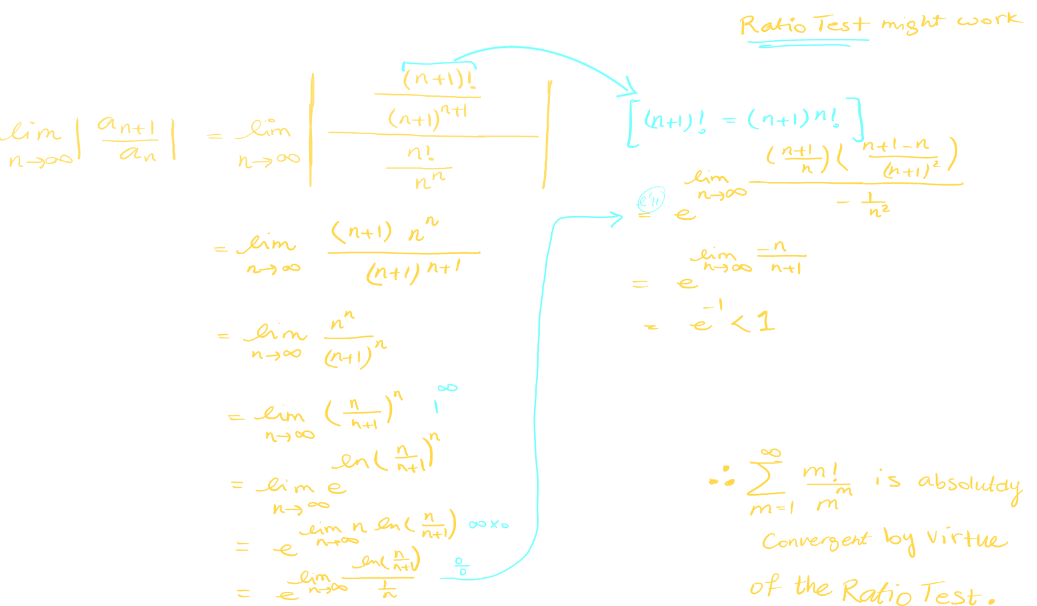 Ratio Test might work
lim n→∞ | a_{n+1} / a_n | = lim n→∞ | ((n+1)! / (n+1)^{n+1}) / (n! / n^n) |
[(n+1)! = (n+1) n!]
= lim n→∞ ((n+1) n^n) / (n+1)^{n+1}
= lim n→∞ n^n / (n+1)^n
= lim n→∞ (n / n+1)^n 1^∞
= lim n→∞ e^{ln(n / n+1)^n}
= e^{lim n→∞ n ln(n / n+1)} ∞×0
= e^{lim n→∞ ln(n / n+1) / (1/n)} 0/0
= e^{lim n→∞ ((n+1 / n)(n+1-n / (n+1)^2)) / (-1/n^2)}
= e^{lim n→∞ -n / n+1}
= e^{-1} < 1
∴ ∑_{m=1}^{∞} m! / m^m is absolutely
Convergent by virtue
of the Ratio Test.